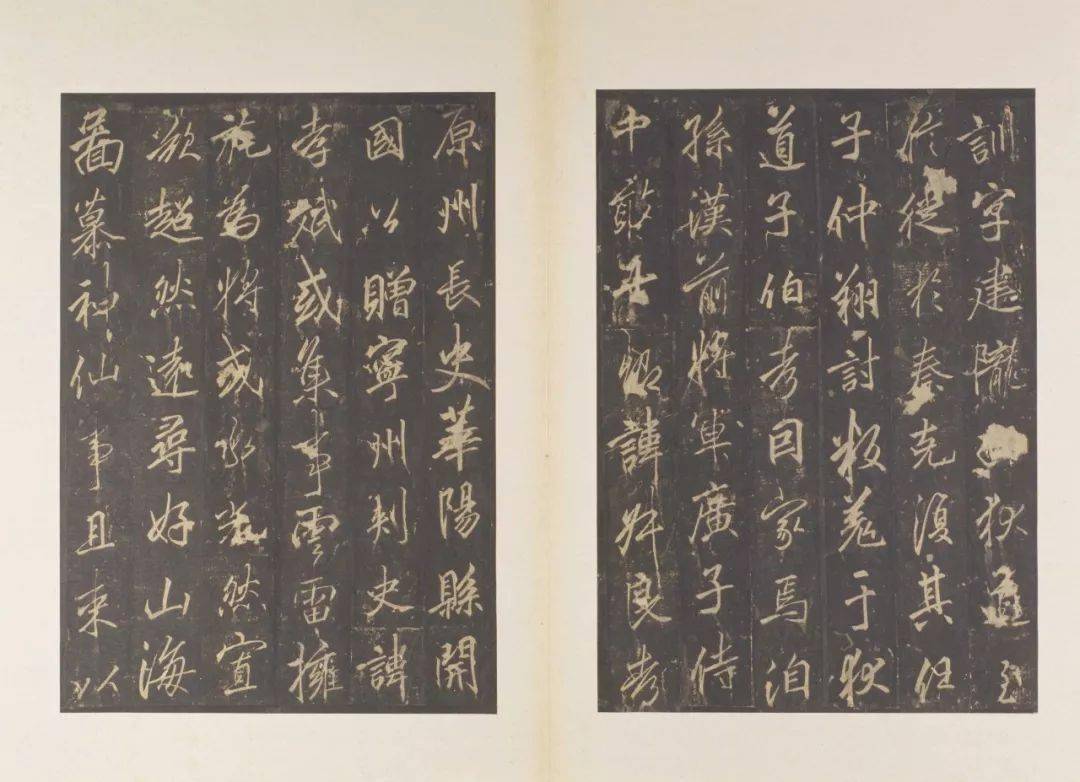 訓字建隴狄道至
於徙於秦克復其任
子仲翔討叛羌于狄
道子伯考因家焉洎
孫漢前將軍廣子侍
中敢諱良考
原州長史華陽縣開
國公贈寧州刺史諱
孝斌或集事雲雷擁
旄為將或然宣
欲超然遠尋好山海
圖慕神仙事且束以